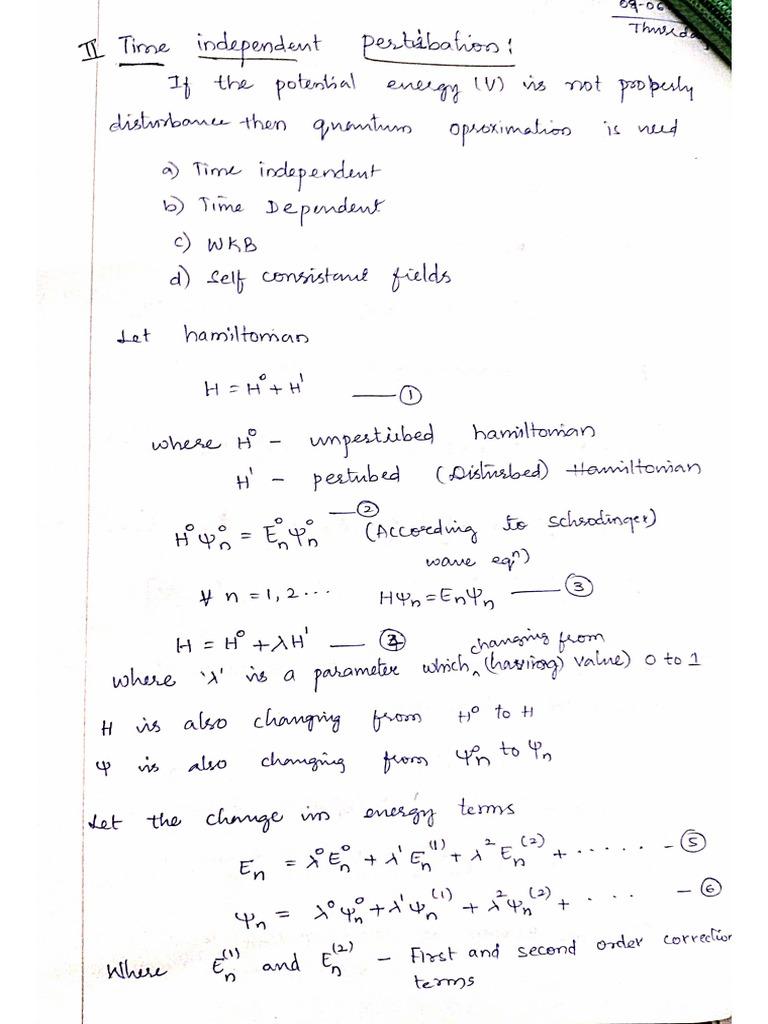 09-06
Thursday
II Time independent pertibation:
If the potential energy (V) is not properly
disturbance then quantum oproximation is need
a) Time independent
b) Time Dependent
c) WKB
d) Self consistant fields
Let hamiltonian
H = H⁰ + H¹ —— ①
where H⁰ - unpertibed hamiltonian
H¹ - pertubed (Disturbed) Hamiltonian
H⁰ψₙ⁰ = Eₙ⁰ψₙ⁰ —② (According to Schrodinger)
wave eqⁿ)
∀ n = 1, 2 ... Hψₙ = Eₙψₙ —— ③
H = H⁰ + λH¹ —— ④
changing from
where 'λ' is a parameter which ^ (having) value) 0 to 1
H is also changing from H⁰ to H
ψ is also changing from ψₙ⁰ to ψₙ
Let the change in energy terms
Eₙ = λ⁰Eₙ⁰ + λ¹Eₙ⁽¹⁾ + λ²Eₙ⁽²⁾ + ...... - ⑤
ψₙ = λ⁰ψₙ⁰ + λ¹ψₙ⁽¹⁾ + λ²ψₙ⁽²⁾ + ... — ⑥
Where Eₙ⁽¹⁾ and Eₙ⁽²⁾ - First and second order correction
terms